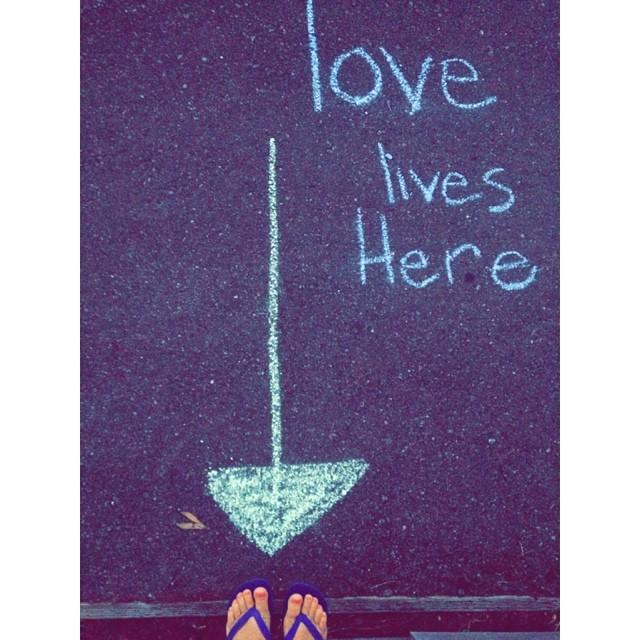 love
lives
Here